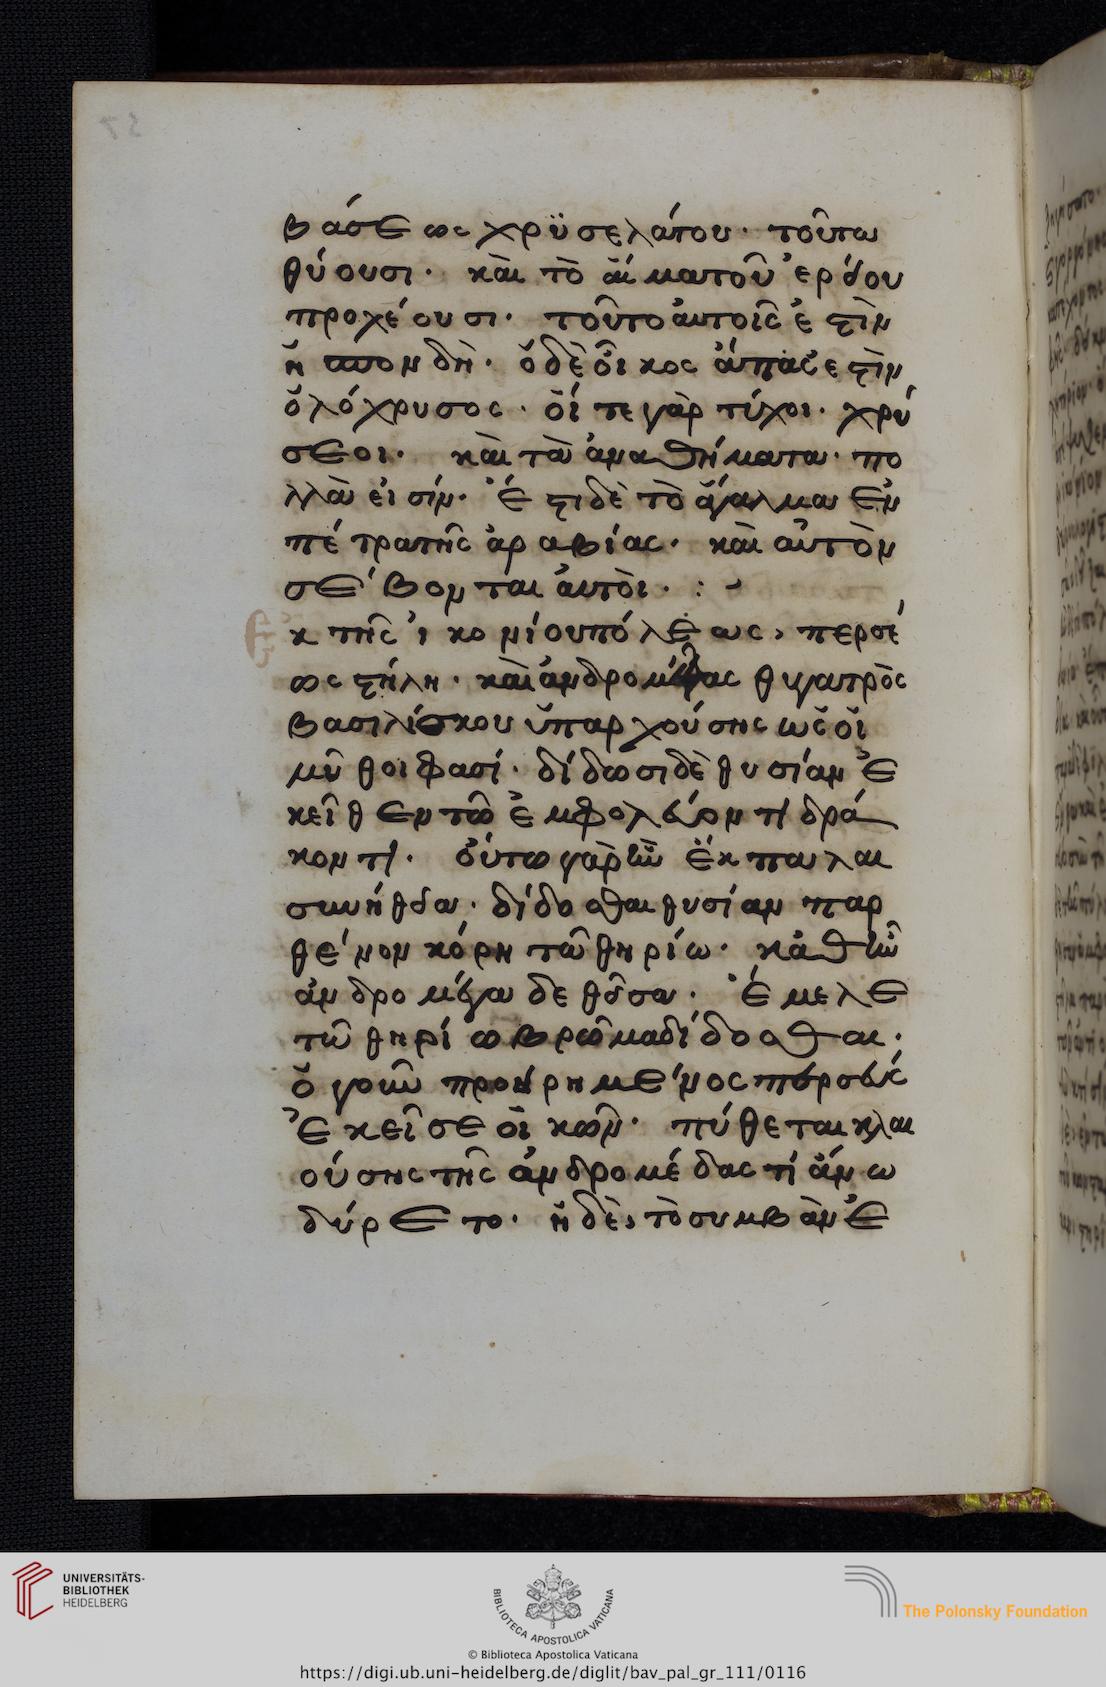 βάσεως χρϋσελάτου· τοῦτω
θύουσι· καὶ τὸ αἷματοῦ ἐρίου
προχέουσι· τοῦτο ἀυτοῖς ἐστὶν
ἡ σπονδὴ· ὁ δὲ οἶκος ἅπας ἐστὶν
ὁλόχρυσος· οἵ τε γὰρ τύχοι· χρύ
σεοι· καὶ τὰ ἀναθήματα· πο
λλὰ εἰσίν· ἔστι δὲ τὸ ἄγαλμα ἐν
πέτρα τῆς ἀραβίας· καὶ αὐτὸν
σέβονται ἀυτὸι· : ~
Ἐκ τῆς ἰκονίου πόλεως, περσέ
ως στήλη· καὶ ἀνδρομέδας θυγατρὸς
βασιλίσκου ὑπαρχούσης ὡς οἱ
μῦθοι φασί· δίδωσι δὲ θυσίαν ἐ
κεῖθεν τῶ ἐμφολεύοντι δρά
κοντι· οὕτω γὰρ ἦν ἔκπαλαι
συνήθεια· δίδοσθαι θυσίαν παρ
θένον κόρη τῶ θηρίω· κἀθ ἣν
ἀνδρομέδα δεθεῖσα· ἔμελε
τῶ θηρίω βρῶμα δίδοσθαι·
ὁ γοῦν προηρημένος περσεύς
ἐκεῖσε οἰκῶν· πύθεται κλαι
ούσης τῆς ἀνδρομέδας τί ἄν ω
δύρετο· ἡ δὲ, τὸ συμβὰν ἐ
UNIVERSITÄTS-
BIBLIOTHEK
HEIDELBERG
BIBLIOTECA APOSTOLICA VATICANA
The Polonsky Foundation
© Biblioteca Apostolica Vaticana
https://digi.ub.uni-heidelberg.de/diglit/bav_pal_gr_111/0116